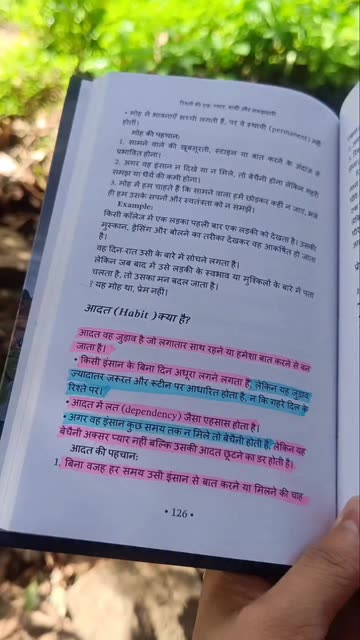 रिश्तों की एक प्यार, यारी और समझदारी
• मोह में भावनाएँ सच्ची लगती हैं, पर वे स्थायी (permanent) नहीं
होतीं।
मोह की पहचान:
1. सामने वाले की खूबसूरती, स्टाइल या बात करने के अंदाज़ से
प्रभावित होना।
2. अगर वह इंसान न दिखे या न मिले, तो बेचैनी होना लेकिन गहरी
समझ या धैर्य की कमी होना।
3. मोह में हम चाहते हैं कि सामने वाला हमें छोड़कर कहीं न जाए, भले
ही हम उसके सपनों और स्वतंत्रता को न समझें।
Example:
किसी कॉलेज में एक लड़का पहली बार एक लड़की को देखता है। उसकी
मुस्कान, ड्रेसिंग और बोलने का तरीका देखकर वह आकर्षित हो जाता
है।
वह दिन-रात उसी के बारे में सोचने लगता है।
लेकिन जब बाद में उसे लड़की के स्वभाव या मुश्किलों के बारे में पता
चलता है, तो उसका मन बदल जाता है।
? यह मोह था, प्रेम नहीं।
आदत (Habit )क्या है?
आदत वह जुड़ाव है जो लगातार साथ रहने या हमेशा बात करने से बन
जाता है।
• किसी इंसान के बिना दिन अधूरा लगने लगता है, लेकिन यह जुड़ाव
ज्यादातर ज़रूरत और रूटीन पर आधारित होता है, न कि गहरे दिल के
रिश्ते पर।
• आदत में लत (dependency) जैसा एहसास होता है।
• अगर वह इंसान कुछ समय तक न मिले तो बेचैनी होती है, लेकिन यह
बेचैनी अक्सर प्यार नहीं बल्कि उसकी आदत छूटने का डर होती है।
आदत की पहचान:
1. बिना वजह हर समय उसी इंसान से बात करने या मिलने की चाह
• 126 •